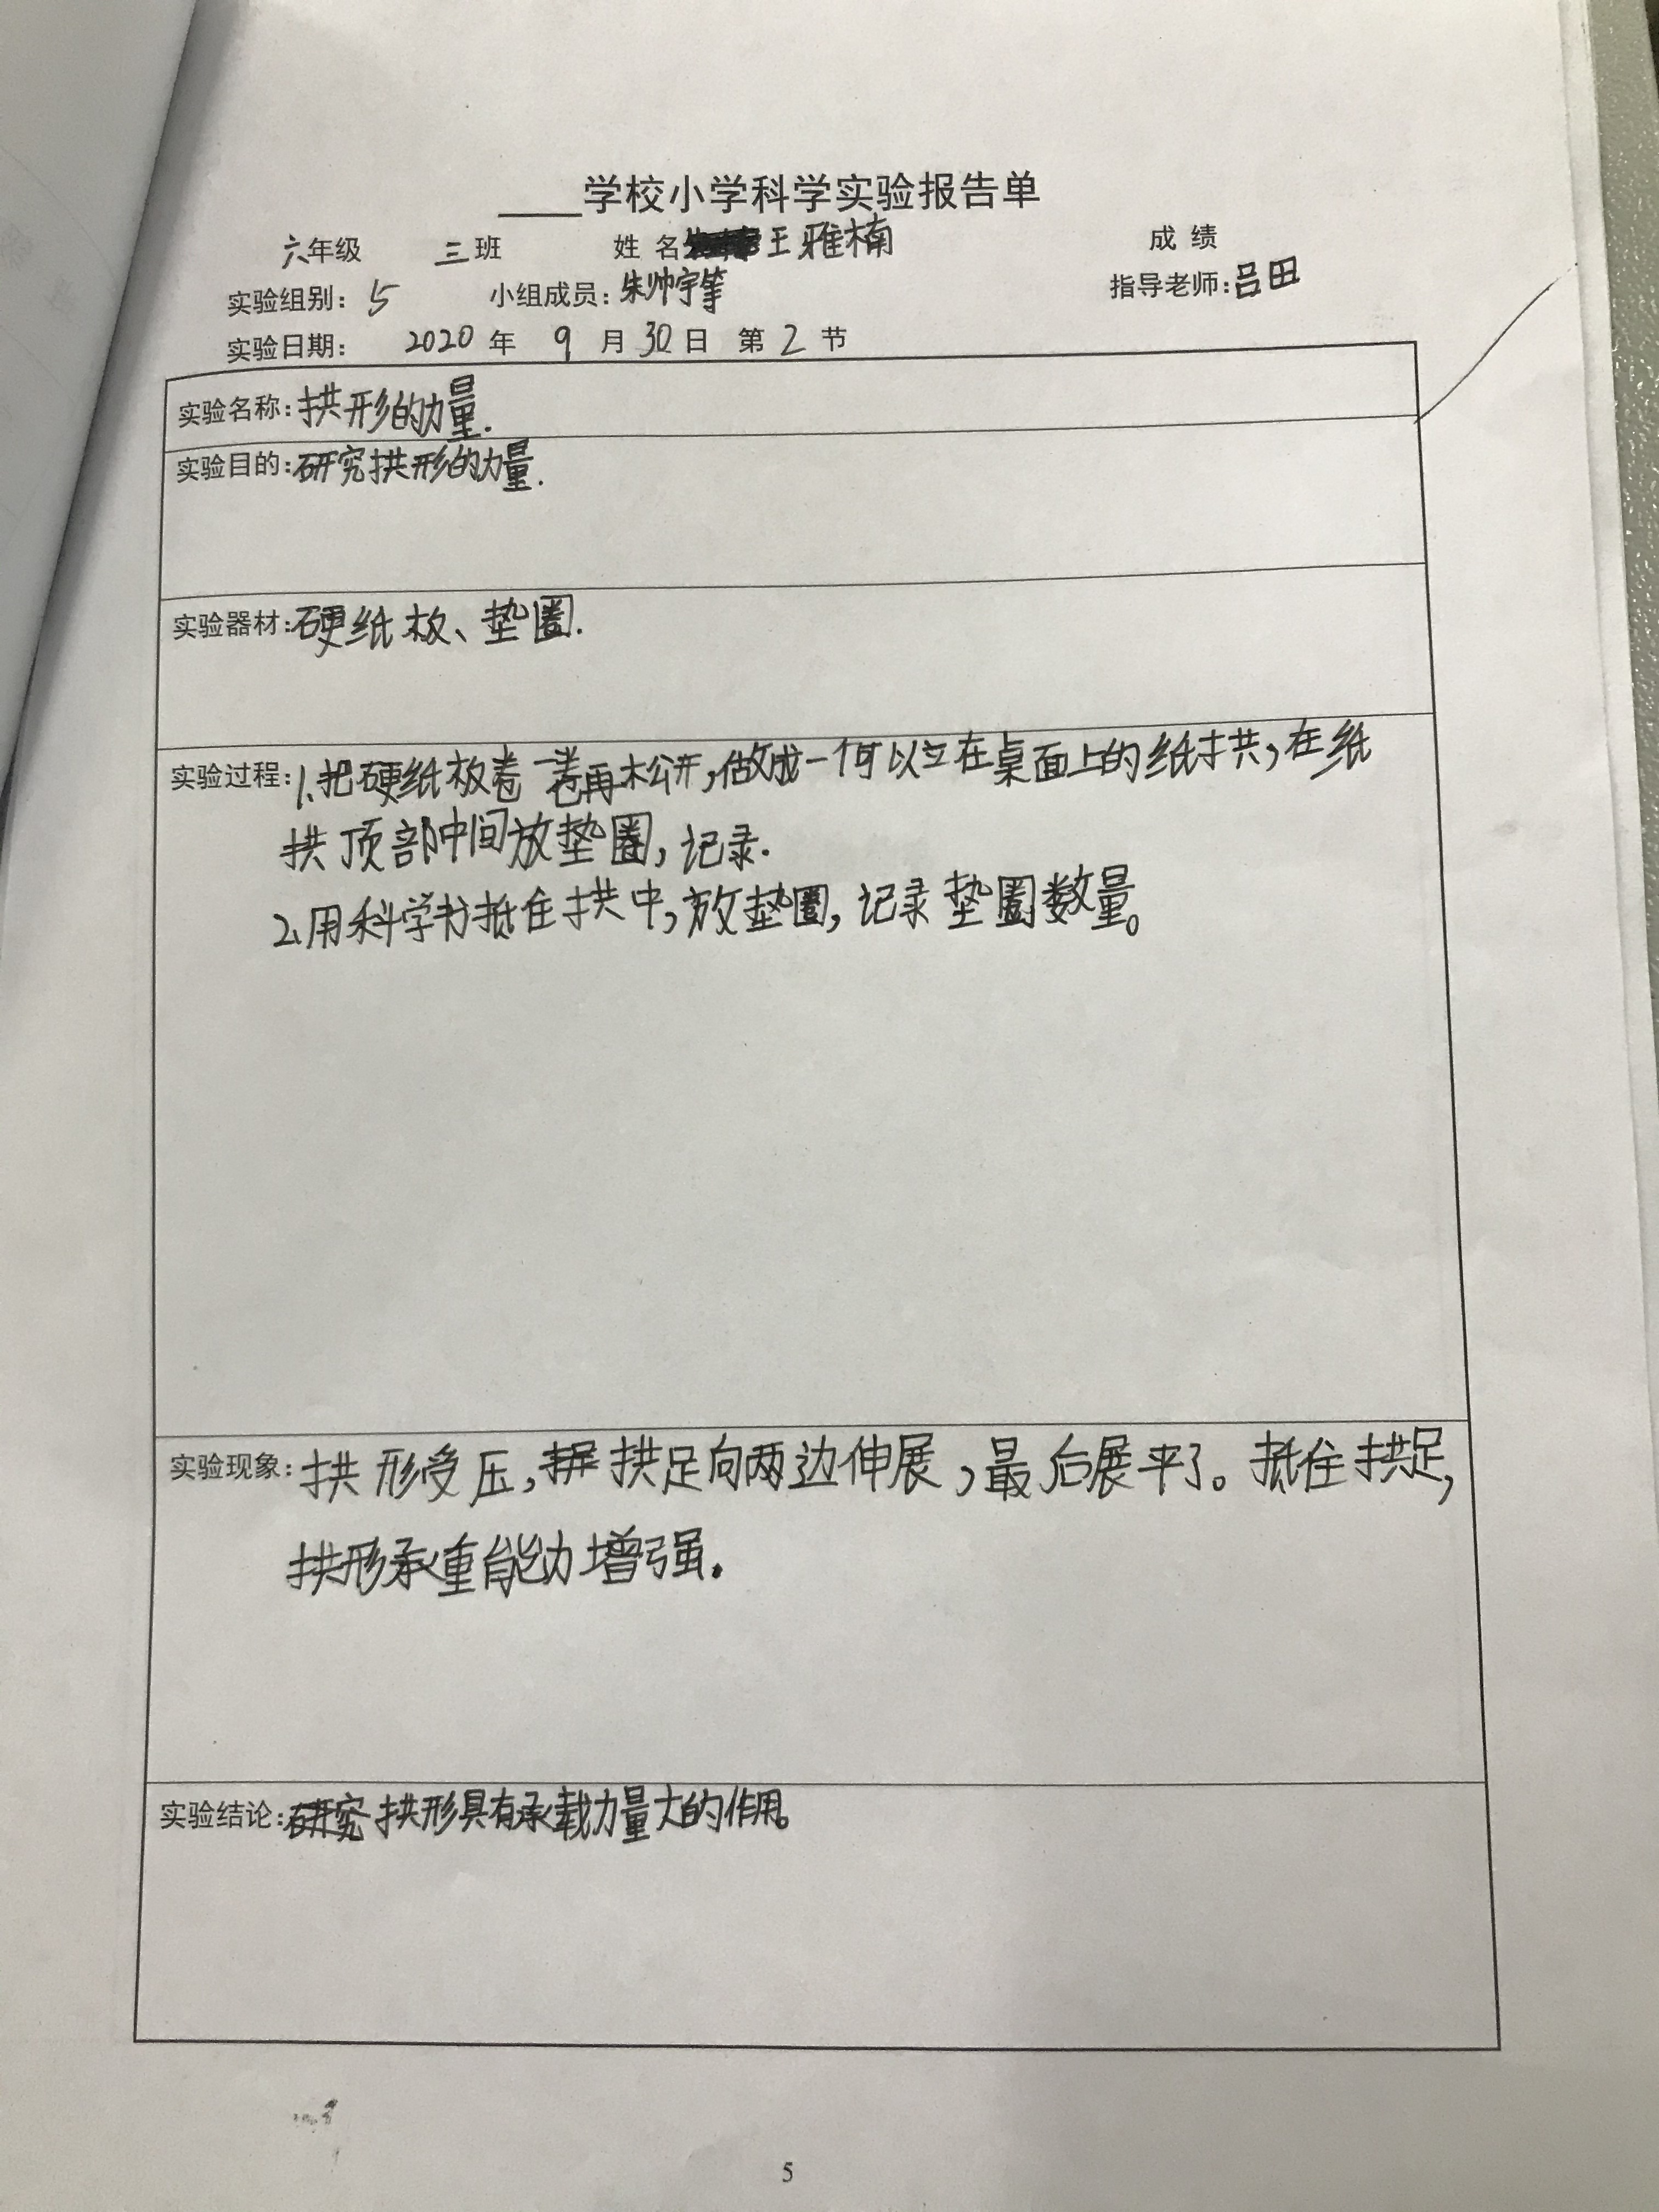 ____学校小学科学实验报告单
六年级 三班 姓 名 王雅楠 成 绩
实验组别: 5 小组成员: 朱帅宇等 指导老师: 吕田
实验日期: 2020 年 9 月 30 日 第 2 节
实验名称: 拱形的力量.
实验目的: 研究拱形的力量.
实验器材: 硬纸板、垫圈.
实验过程: 1.把硬纸板卷一卷再松开,做成一个可以立在桌面上的纸拱,在纸
拱顶部中间放垫圈,记录.
2.用科学书抵住拱中,放垫圈,记录垫圈数量。
实验现象: 拱形受压,拱足向两边伸展,最后展平了。抵住拱足,
拱形承重能力增强.
实验结论: 拱形具有承载力量大的作用。
5